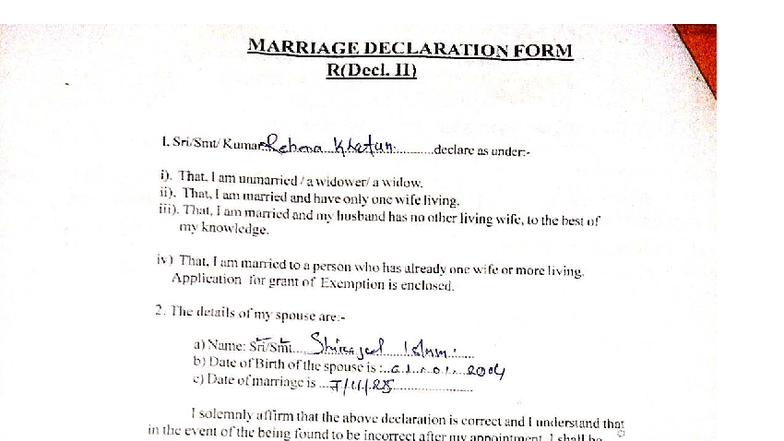 MARRIAGE DECLARATION FORM
R(Decl. II)
I. Sri/Smt/ Kumar Rehena Khatun declare as under:-
i). That, I am unmarried / a widower/ a widow.
ii). That, I am married and have only one wife living.
iii). That, I am married and my husband has no other living wife, to the best of
my knowledge.
iv) That, I am married to a person who has already one wife or more living.
Application for grant of Exemption is enclosed.
2. The details of my spouse are:-
a) Name: Sri/Smt... Islam
b) Date of Birth of the spouse is :..01..01..2004
c) Date of marriage is ...7/11/25
I solemnly affirm that the above declaration is correct and I understand that
in the event of the being found to be incorrect after my appointment, I shall be